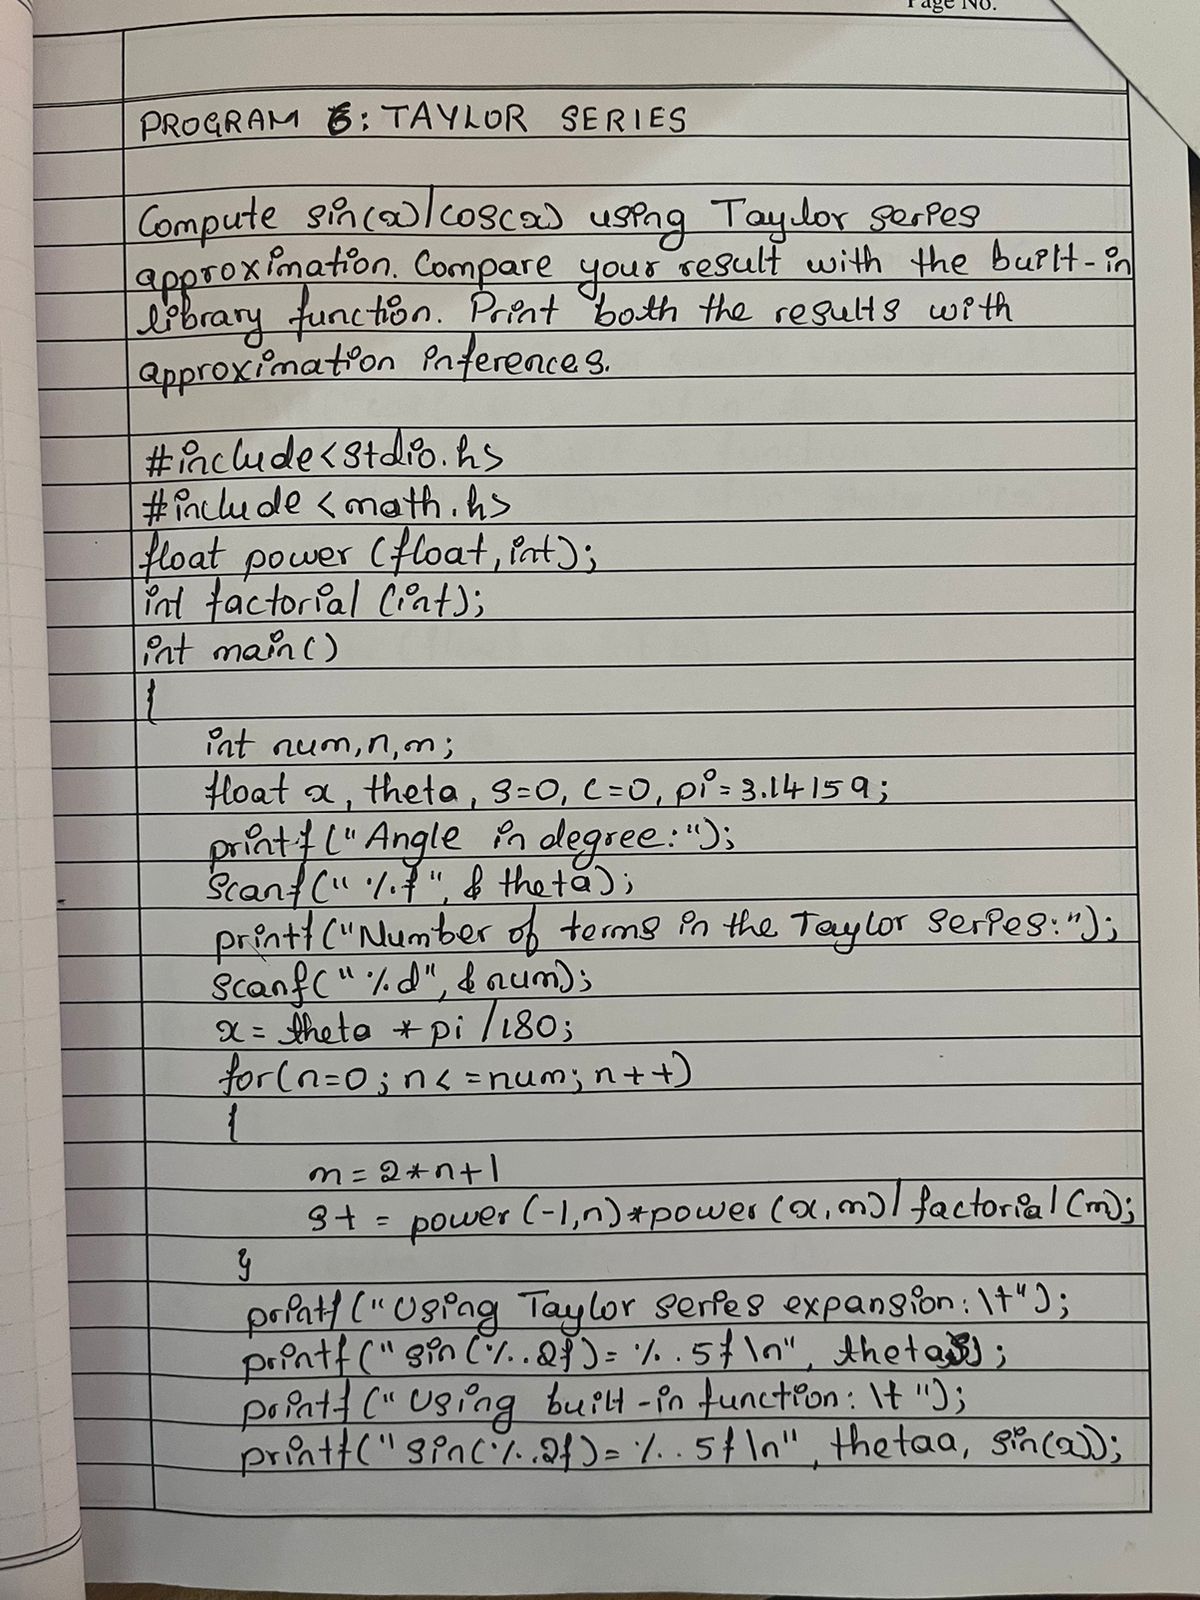 Page No.
PROGRAM 6: TAYLOR SERIES
Compute sin(x)/cos(x) using Taylor series
approximation. Compare your result with the built-in
library function. Print both the results with
approximation inferences.
#include<stdio.h>
#include <math.h>
float power (float, int);
int factorial (int);
int main()
{
int num,n,m;
float x, theta, s=0, c=0, pi=3.14159;
printf ("Angle in degree:");
scanf("%f", & theta);
printf ("Number of terms in the Taylor series:");
scanf("%d", & num);
x= theta * pi /180;
for(n=0; n<=num; n++)
{
m=2*n+1
s+ = power (-1,n)*power (x,m)/factorial (m);
}
printf ("Using Taylor series expansion: \t");
printf ("sin (%.2f)= %.5f\n", theta);
printf ("Using built-in function: \t");
printf("sin(%.2f)= %.5f\n", thetaa, sin(x));